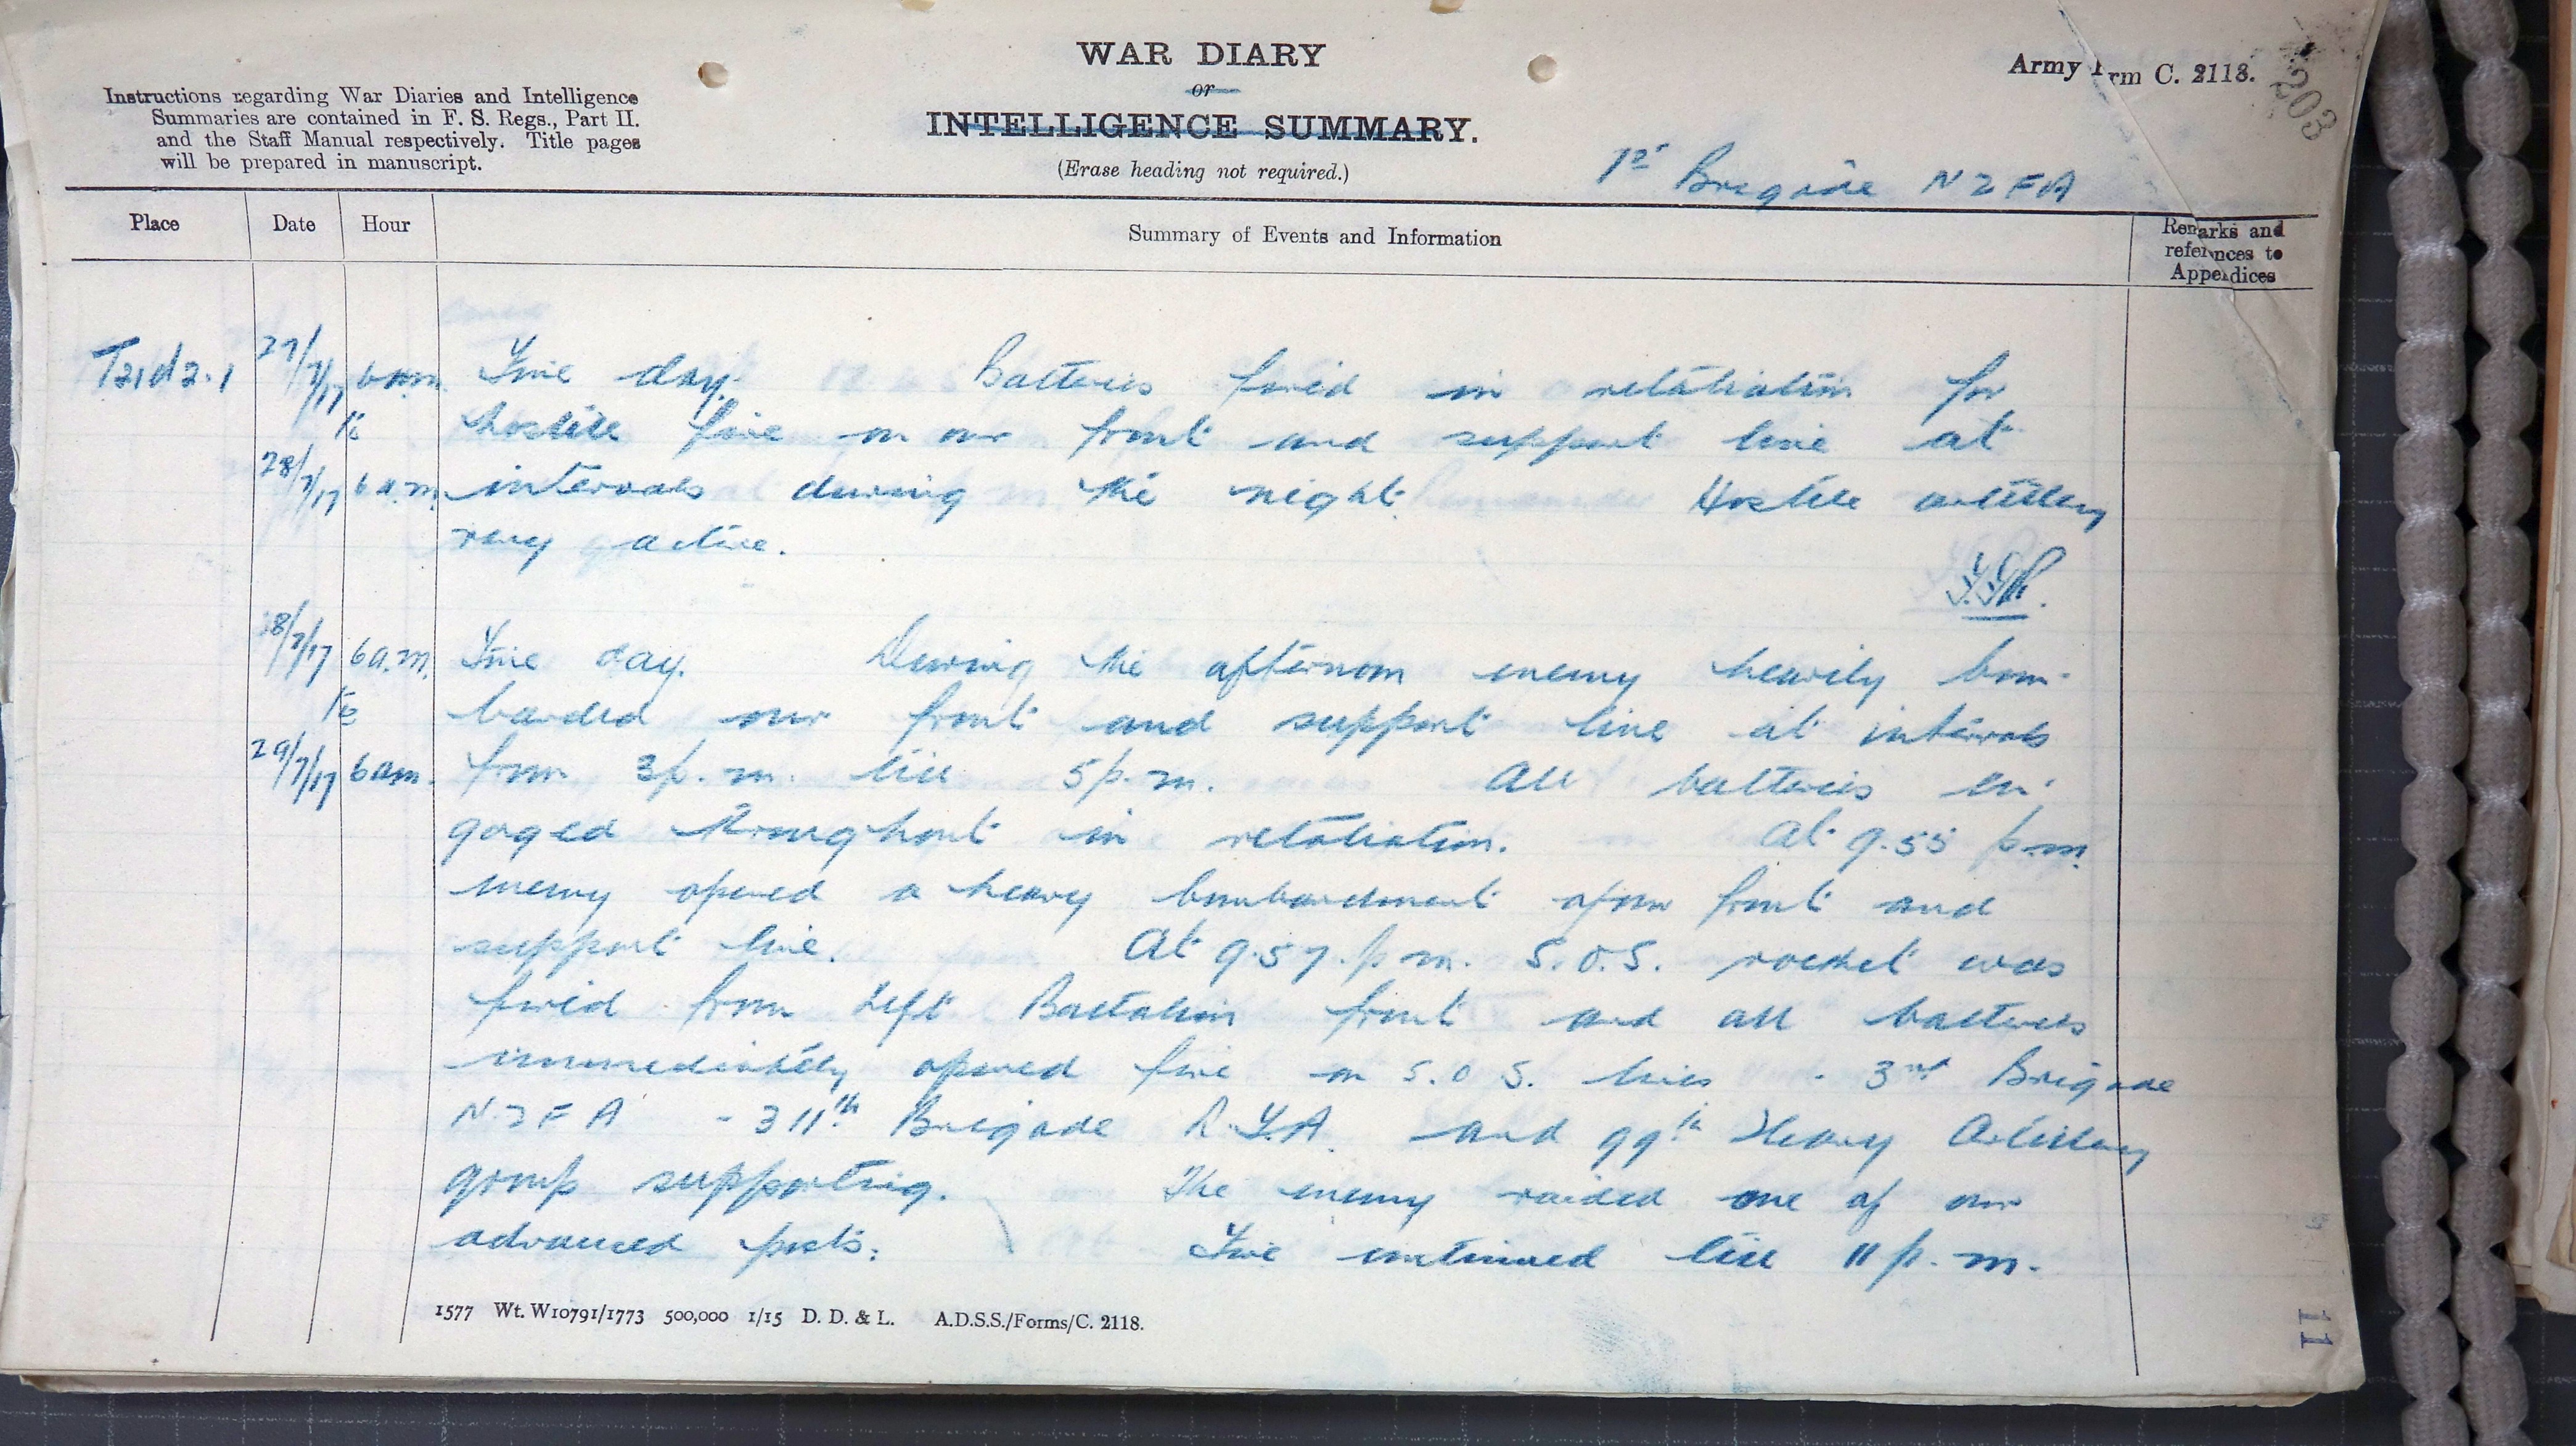 WAR DIARY
or
INTELLIGENCE SUMMARY.
(Erase heading not required.)
Instructions regarding War Diaries and Intelligence
Summaries are contained in F. S. Regs., Part II.
and the Staff Manual respectively. Title pages
will be prepared in manuscript.
Army Form C. 2118.
203
1st Brigade NZFA
Place Date Hour Summary of Events and Information Remarks and references to Appendices
T21d2.1 27/7/17 6am Fine day. Batteries fired in retaliation for
to hostile fire on our front and support line at
28/7/17 6 a.m. intervals during the night. Hostile artillery
very active.
28/7/17 6a.m. Fine day. During the afternoon enemy heavily bom-
to barded our front and support line at intervals
29/7/17 6am. from 3p.m. till 5p.m. All batteries en-
gaged throughout in retaliation. At 9.55 p.m.
enemy opened a heavy bombardment of our front and
support line. At 9.57.p.m. S.O.S. rocket was
fired from Left Battalion front and all batteries
immediately opened fire on S.O.S. lines - 3rd Brigade
NZFA - 311th Brigade R.F.A. and 99th Heavy Artillery
group supporting. The enemy raided one of our
advanced posts. Fire continued till 11 p.m.
1577 Wt. W10791/1773 500,000 1/15 D. D. & L. A.D.S.S./Forms/C. 2118.
11